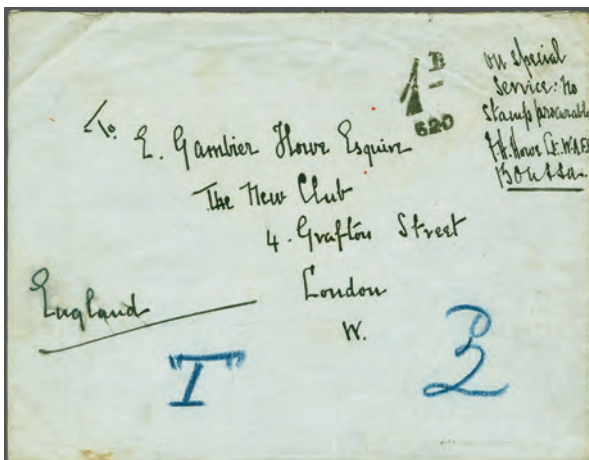 on special
Service: no
stamp procurable
Howe Lt. W.A.F.F.
Boussa.
1D
620
To
E. Gambier Howe Esquire
The New Club
4. Grafton Street
London
W.
England
"T"
2